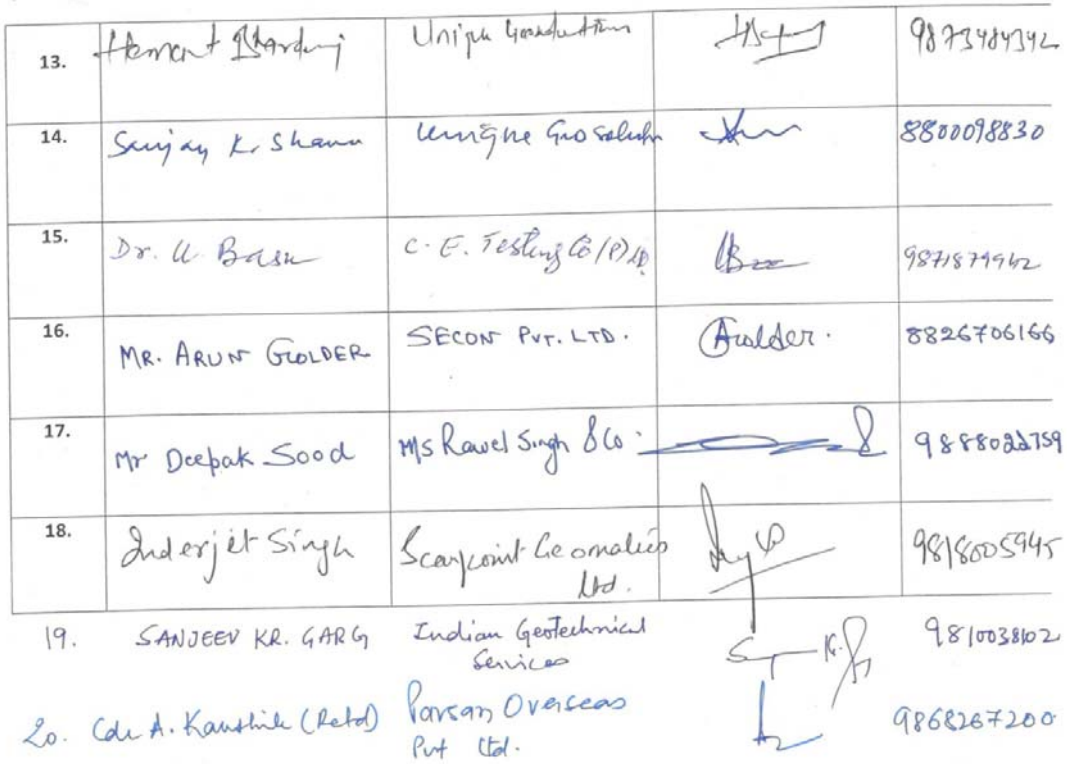 13. Hemant Bhardwaj Unique 9873484342
14. Sanjay K. Sharma Unique Geo Solution 8800098830
15. Dr. U. Basu C. E. Testing Co (P) Ltd. 9871879942
16. MR. ARUN GOLDER SECON PVT. LTD. AGolder. 8826706166
17. Mr Deepak Sood M/s Rawel Singh & Co. 9888022759
18. Inderjit Singh Scanpoint Geomatics 9818005945
Ltd.
19. SANJEEV KR. GARG Indian Geotechnical 9810038102
Services
20. Cdr A. Kaushik (Retd) Parsan Overseas 9868267200
Pvt Ltd.